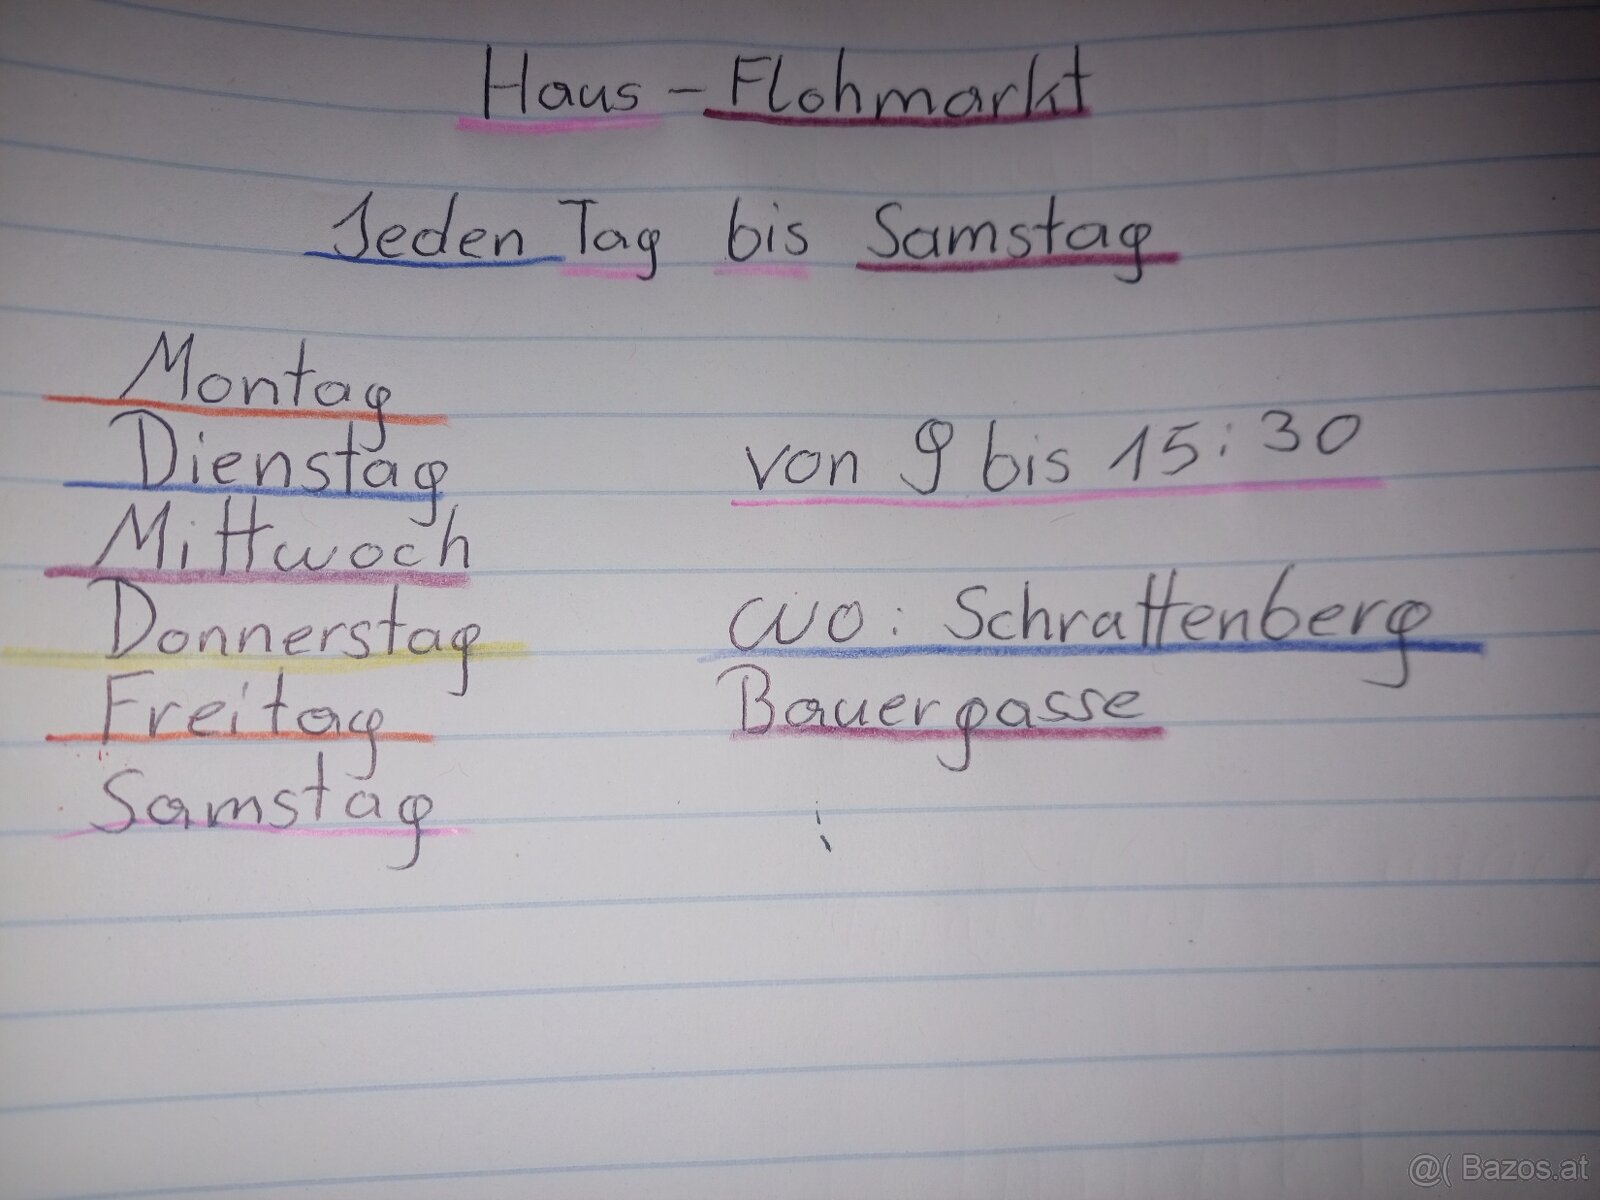 Haus - Flohmarkt
Jeden Tag bis Samstag
Montag
Dienstag
Mittwoch
Donnerstag
Freitag
Samstag
von 9 bis 15:30
wo: Schrattenberg
Bauergasse
@( Bazos.at